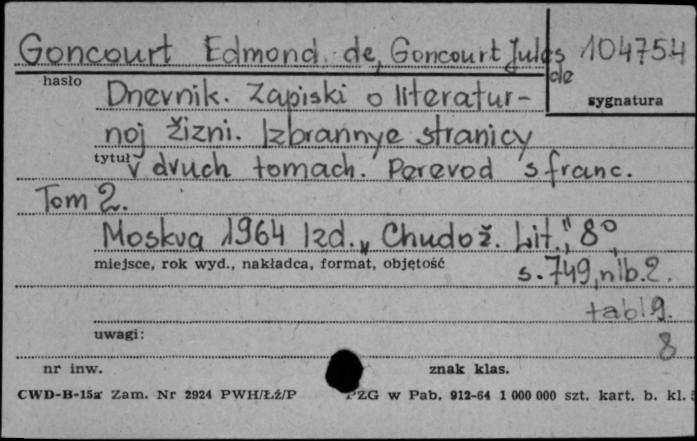 Goncourt Edmond de, Goncourt Jules de 104754
hasło
sygnatura
Dnevnik. Zapiski o literatur-
noj žizni. Izbrannye stranicy
tytuł v dvuch tomach. Perevod s franc.
Tom 2.
Moskva 1964 Izd. „Chudož. Lit.", 8°,
miejsce, rok wyd., nakładca, format, objętość s. 749, nlb. 2.
tabl 9.
uwagi:
8
nr inw. znak klas.
CWD-B-15a Zam. Nr 2924 PWH/ŁŻ/P PZG w Pab. 912-64 1 000 000 szt. kart. b. kl.